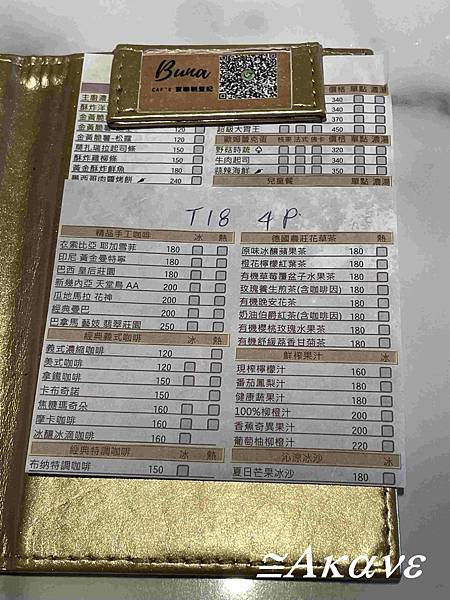 Buna
CAF'E 布納朝食記
主廚濃
酥炸洋
金黃脆
金黃脆薯-松露
莫扎瑞拉起司條
酥炸雞柳條
黃金酥炸鮮魚 180
墨西哥肉醬烤餅 240
120
價格 單點 濃湯
340
340
320
超級大胃王 450
歐姆蕾克蛋 價格 單點 濃湯
野菇時蔬 320
牛肉起司 340
蒜辣海鮮 350
兒童餐
T18 4P.
精品手工咖啡 冰 熱
衣索比亞 耶加雪菲 180
印尼 黃金曼特寧 180
巴西 皇后莊園 180
新幾內亞 天堂鳥 AA 200
瓜地馬拉 花神 200
經典曼巴 200
巴拿馬 藝妓 翡翠莊園 250
經典義式咖啡 冰 熱
義式濃縮咖啡 120
美式咖啡 120
拿鐵咖啡 150
卡布奇諾 150
焦糖瑪奇朵 160
摩卡咖啡 160
冰釀冰滴咖啡 160
經典特調咖啡 冰 熱
布納特調咖啡 150
德國農莊花草茶 熱
原味冰釀蘋果茶 180
橙花檸檬紅葉茶 180
有機草莓覆盆子水果茶 180
玫瑰養生煎茶(含咖啡因) 180
有機晚安花茶 180
奶油伯爵紅茶(含咖啡因) 180
有機櫻桃玫瑰水果茶 180
有機舒緩蒜香甘菊茶 180
鮮榨果汁 冰
現榨檸檬汁 160
番茄鳳梨汁 180
健康蔬果汁 180
100%柳橙汁 200
香蕉奇異果汁 200
葡萄柚柳橙汁 220
沁涼冰沙 冰
夏日芒果冰沙 180
ΞAkave